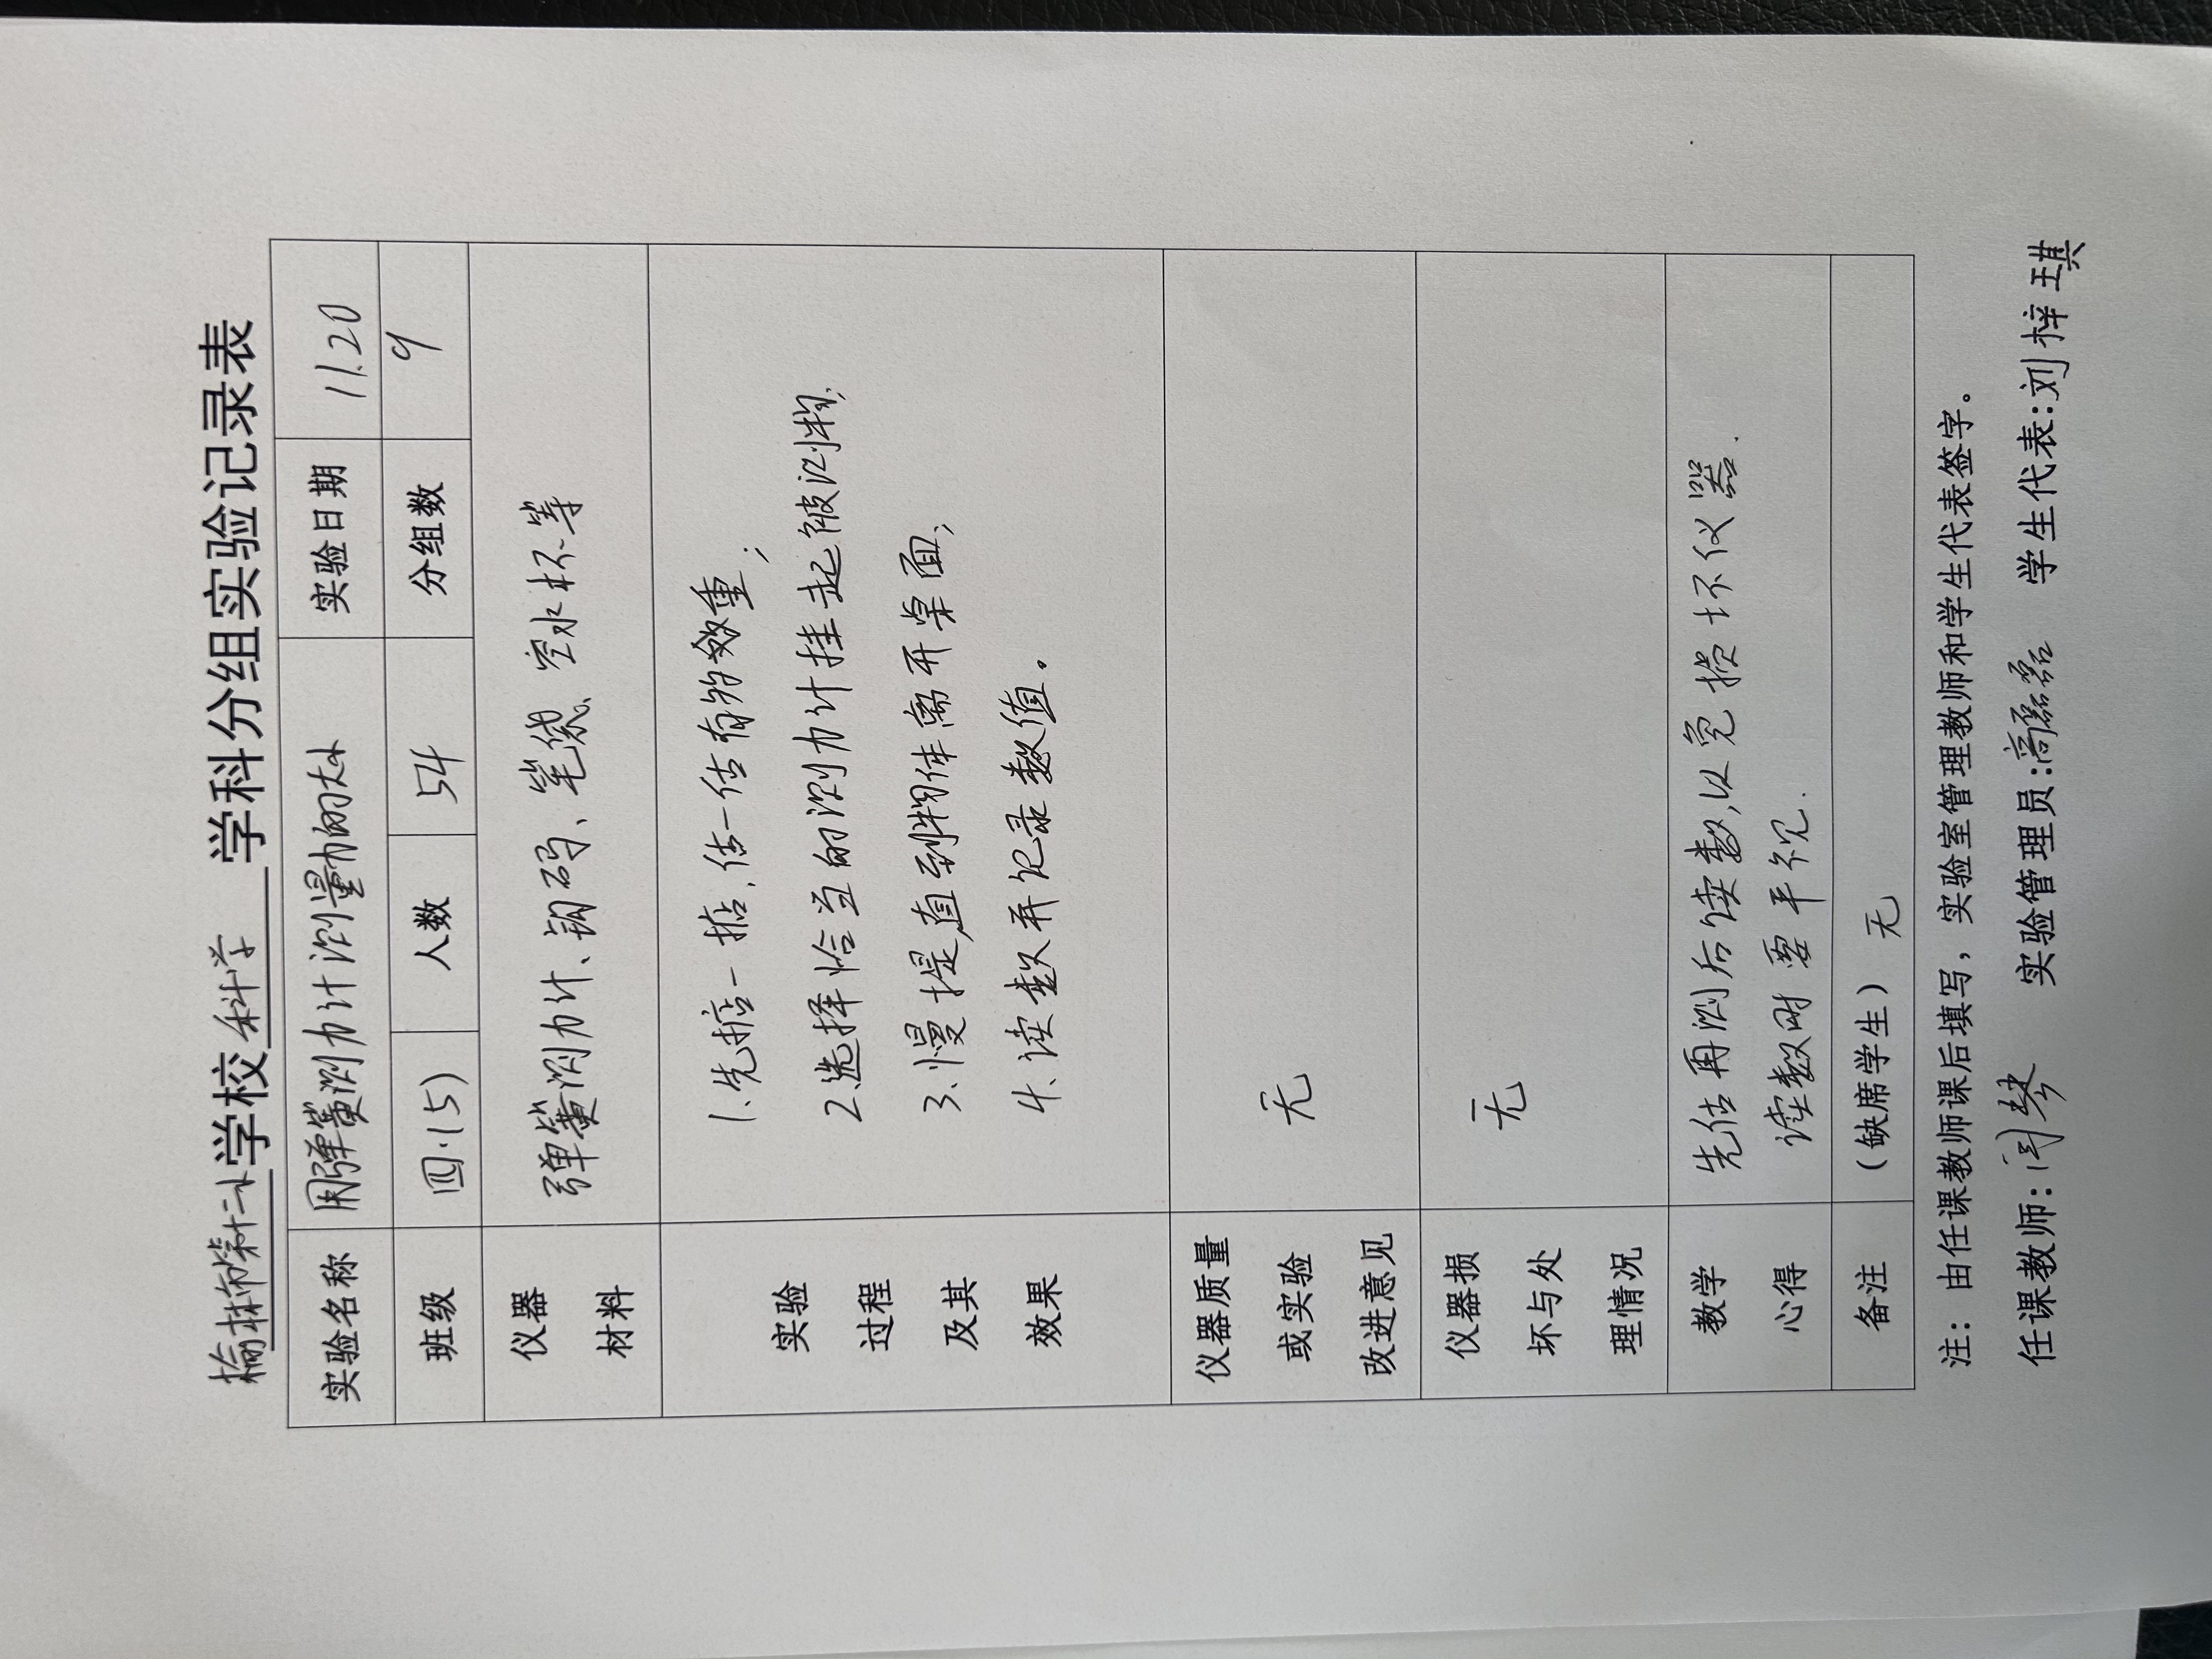 榆林市第十二小学校 科学 学科分组实验记录表
实验名称 用弹簧测力计测量力的大小 实验日期 11.20
班级 四.(5) 人数 54 分组数 9
仪器材料 弹簧测力计、钩码、笔袋、空水杯等
实验过程及其效果
1.先掂一掂,估一估有多重;
2.选择恰当的测力计挂起被测物,
3.慢提,直到物体离开桌面,
4.读数并记录数值。
仪器质量或实验改进意见 无
仪器损坏与处理情况 无
教学心得 先估再测后读数,以免损坏仪器.
读数时要平视.
备注 (缺席学生) 无
注:由任课教师课后填写,实验室管理教师和学生代表签字。
任课教师:闫琴 实验管理员:高磊磊 学生代表:刘梓琪